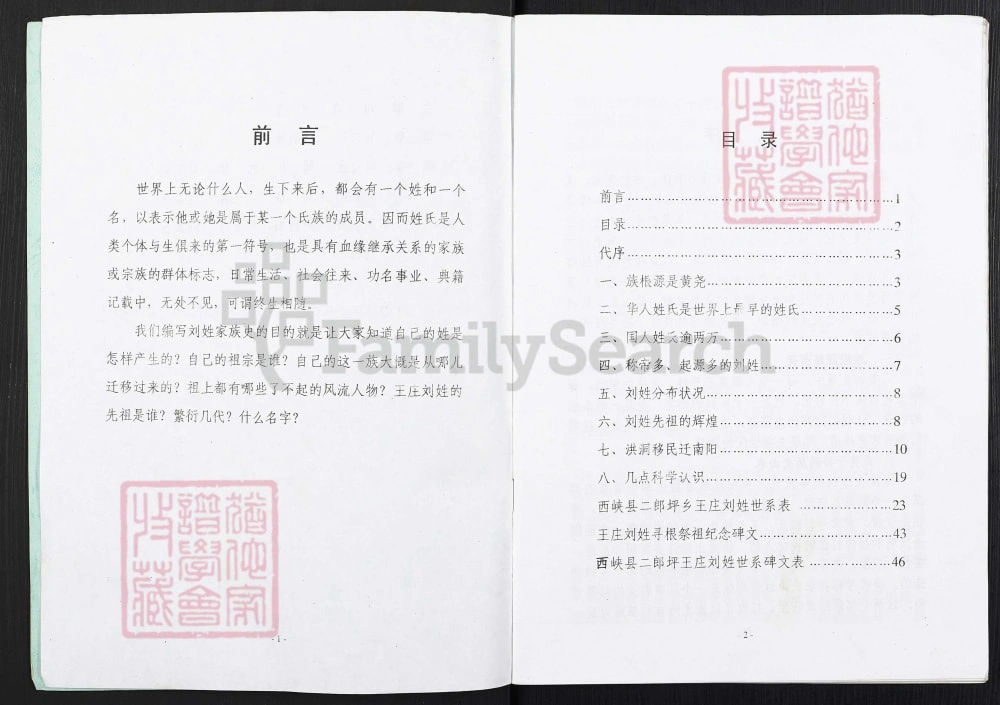 前 言
世界上无论什么人，生下来后，都会有一个姓和一个
名，以表示他或她是属于某一个氏族的成员。因而姓氏是人
类个体与生俱来的第一符号，也是具有血缘继承关系的家族
或宗族的群体标志，日常生活、社会往来、功名事业、典籍
记载中，无处不见，可谓终生相随。
我们编写刘姓家族史的目的就是让大家知道自己的姓是
怎样产生的？自己的祖宗是谁？自己的这一族大概是从哪儿
迁移过来的？祖上都有哪些了不起的风流人物？王庄刘姓的
先祖是谁？繁衍几代？什么名字？
- 1 -
目 录
前言……………………………………1
目录……………………………………2
代序……………………………………3
一、族根源是黄尧……………………3
二、华人姓氏是世界上最早的姓氏……………5
三、国人姓氏逾两万……………………6
四、称帝多、起源多的刘姓………………7
五、刘姓分布状况……………………8
六、刘姓先祖的辉煌……………………8
七、洪洞移民迁南阳……………………10
八、几点科学认识……………………19
西峡县二郎坪乡王庄刘姓世系表 ……………23
王庄刘姓寻根祭祖纪念碑文………………43
西峡县二郎坪王庄刘姓世系碑文表 …………46
- 2 -
FamilySearch
猶他家
譜學會
收藏
猶他家
譜學會
收藏